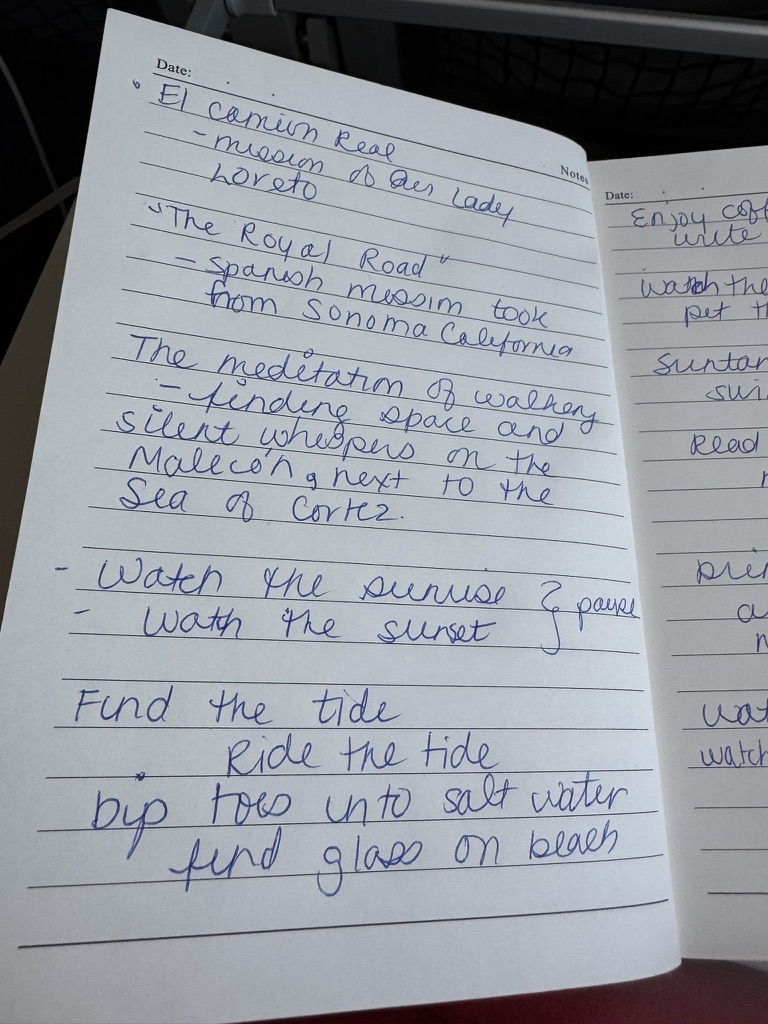 Date:
El camion Real
- mission of Our Lady
Loreto
"The Royal Road"
- Spanish mission took
from Sonoma California
The meditation of walking
- finding space and
silent whispers on the
Malecón, next to the
Sea of Cortez.
- Watch the sunrise } pause
- Watch the sunset
Find the tide
Ride the tide
Dip toes into salt water
find glass on beach
Notes
Date:
Enjoy coff
write
Watch the
pet th
Suntan
swi
Read
Wat
watch